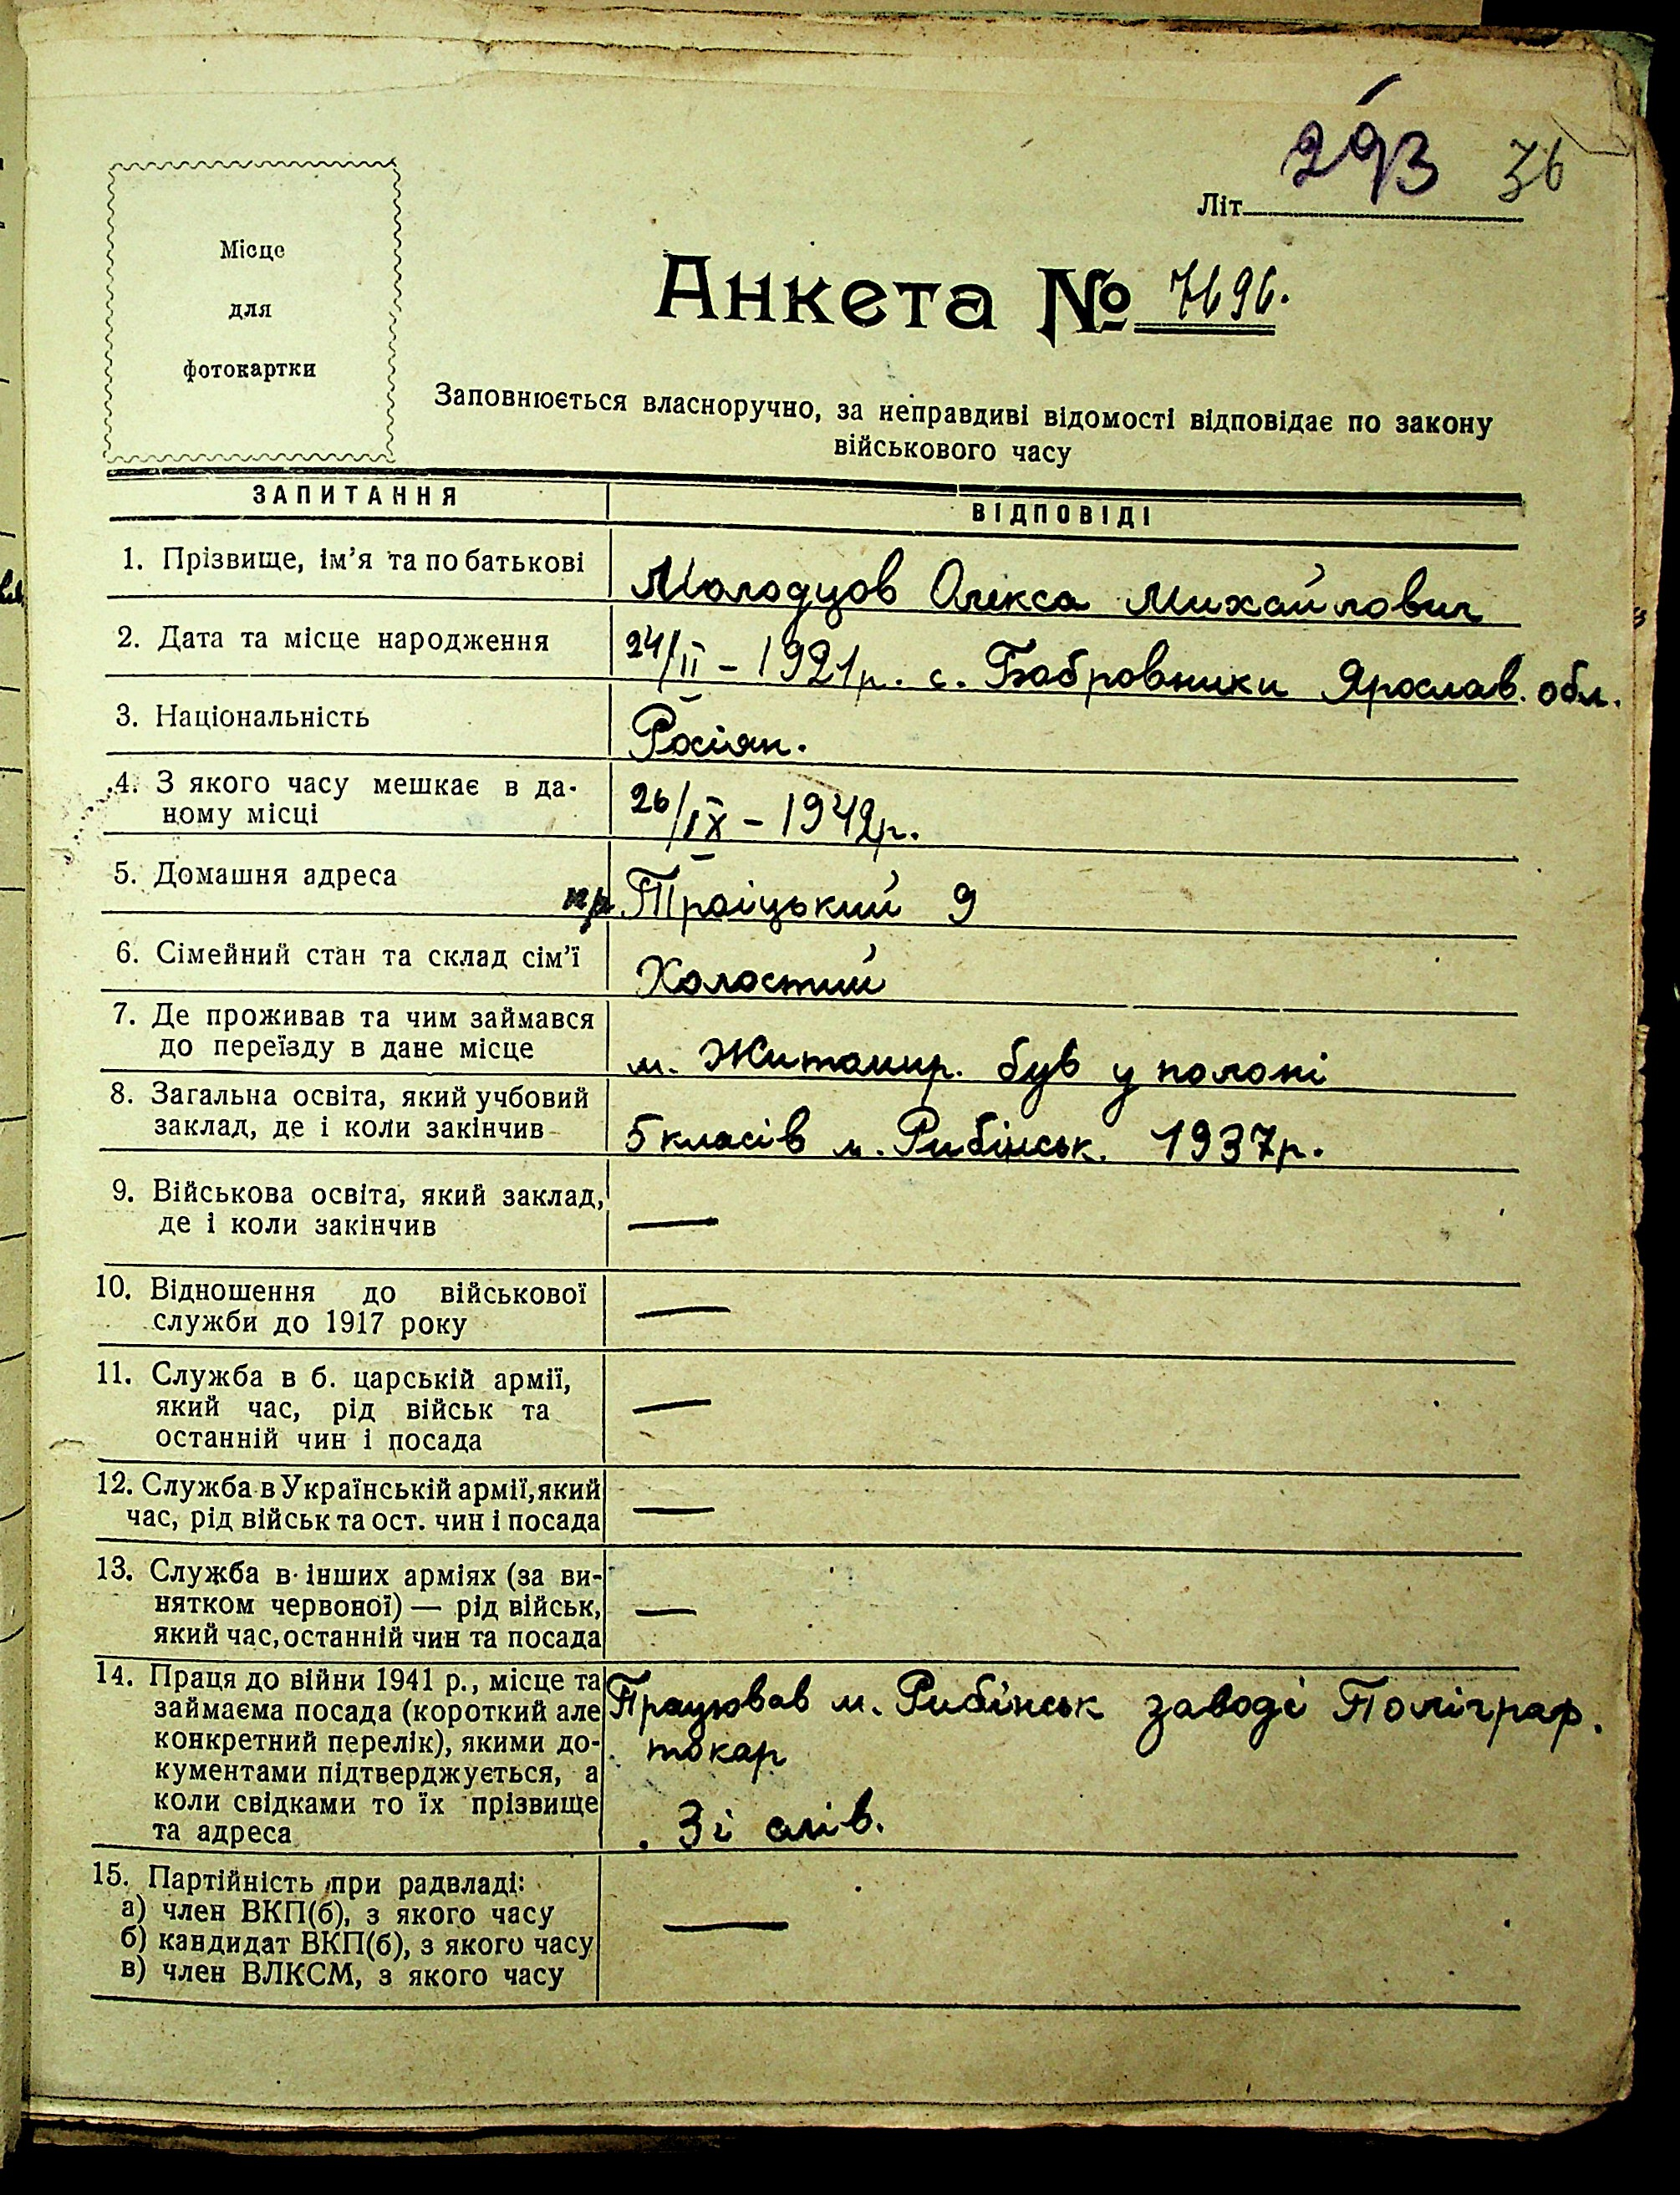 293 36
Літ
Місце
для
фотокартки
Анкета № 7696.
Заповнюється власноручно, за неправдиві відомості відповідає по закону
військового часу
ЗАПИТАННЯ
ВІДПОВІДІ
1. Прізвище, ім'я та по батькові
Молодцов Олекса Михайлович
2. Дата та місце народження
24/II – 1921р. с. Бабровники Ярослав. обл.
3. Національність
Росіян.
4. З якого часу мешкає в да-
ному місці
26/IX – 1942р.
5. Домашня адреса
пр. Траіцький 9
6. Сімейний стан та склад сім'ї
Холостий
7. Де проживав та чим займався
до переїзду в дане місце
м. Житомир. був у полоні
8. Загальна освіта, який учбовий
заклад, де і коли закінчив
5 класів м. Рибінськ. 1937р.
9. Військова освіта, який заклад,
де і коли закінчив
—
10. Відношення до військової
служби до 1917 року
—
11. Служба в б. царській армії,
який час, рід військ та
останній чин і посада
—
12. Служба в Українській армії, який
час, рід військ та ост. чин і посада
—
13. Служба в інших арміях (за ви-
нятком червоної) — рід військ,
який час, останній чин та посада
—
14. Праця до війни 1941 р., місце та
займаєма посада (короткий але
конкретний перелік), якими до-
кументами підтверджується, а
коли свідками то їх прізвище
та адреса
Працював м. Рибінськ заводі Поліграф.
токар
Зі слів.
15. Партійність при радвладі:
а) член ВКП(б), з якого часу
б) кандидат ВКП(б), з якого часу
в) член ВЛКСМ, з якого часу
—